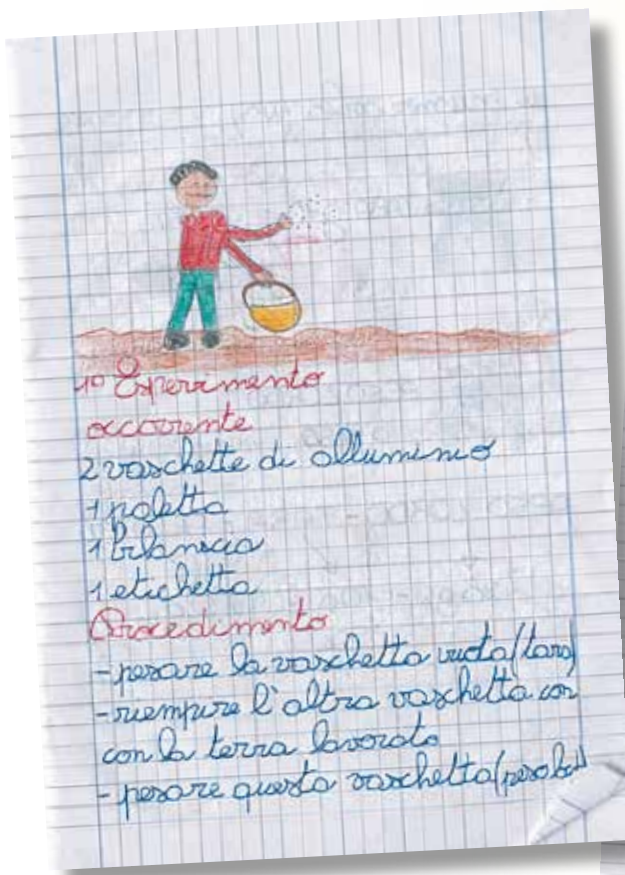 1° Esperimento
occorrente
2 vaschette di alluminio
1 paletta
1 bilancia
1 etichetta
Procedimento
- pesare la vaschetta vuota (tara)
- riempire l'altra vaschetta con
con la terra lavorata
- pesare questa vaschetta (peso